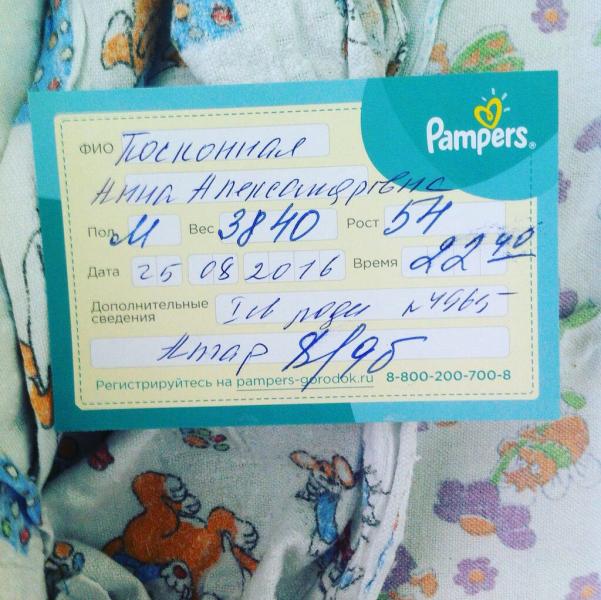 Pampers®
ФИО Посконная
Анна Александровна
Пол М Вес 3840 Рост 54
Дата 25 08 2016 Время 22 40
Дополнительные сведения I-е роды N4965
Апгар 8/9б
Регистрируйтесь на pampers-gorodok.ru 8-800-200-700-8